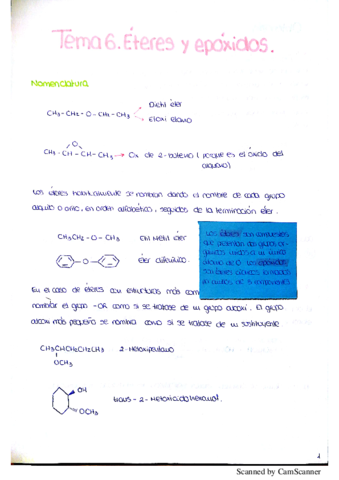 Tema 6. Éteres y epóxidos.
Nomenclatura
CH₃-CH₂-O-CH₂-CH₃
Dietil éter
Etoxi etano
O
CH₃-CH-CH-CH₃ → Ox de 2-buteno (porque es el óxido del
alqueno)
Los éteres habitualmente se nombran dando el nombre de cada grupo
alquilo o arilo, en orden alfabético, seguidos de la terminación éter.
CH₃CH₂-O-CH₃ Etil Metil éter
-O- éter difenílico.
Los éteres son compuestos
que presentan dos grupos or-
gánicos unidos a un mismo
átomo de O. Los epóxidos
son éteres cíclicos formados
en anillos de 3 miembros.
En el caso de éteres con estructuras más com
nombrar el grupo -OR como si se tratase de un grupo alcoxi. El grupo
alcoxi más pequeño se nombra como si se tratase de un sustituyente.
CH₃CHCH₂CH₂CH₃ 2-Metoxipentano
OCH₃
OH
OCH₃
trans-2-Metoxiciclohexanol.
1
Scanned by CamScanner